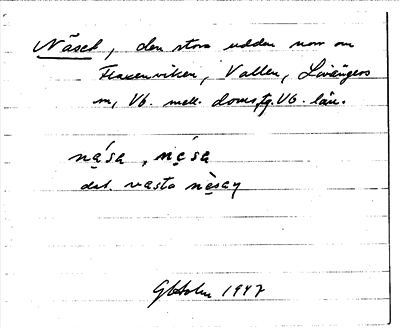 Näset, den stora udden norr om
Flaxenviken, Vallen, Lövångers
sn, Vb. mell. doms., Vb. län.
nä́sa, nä́sa
dat. nasta nèsay
GHolm 1947